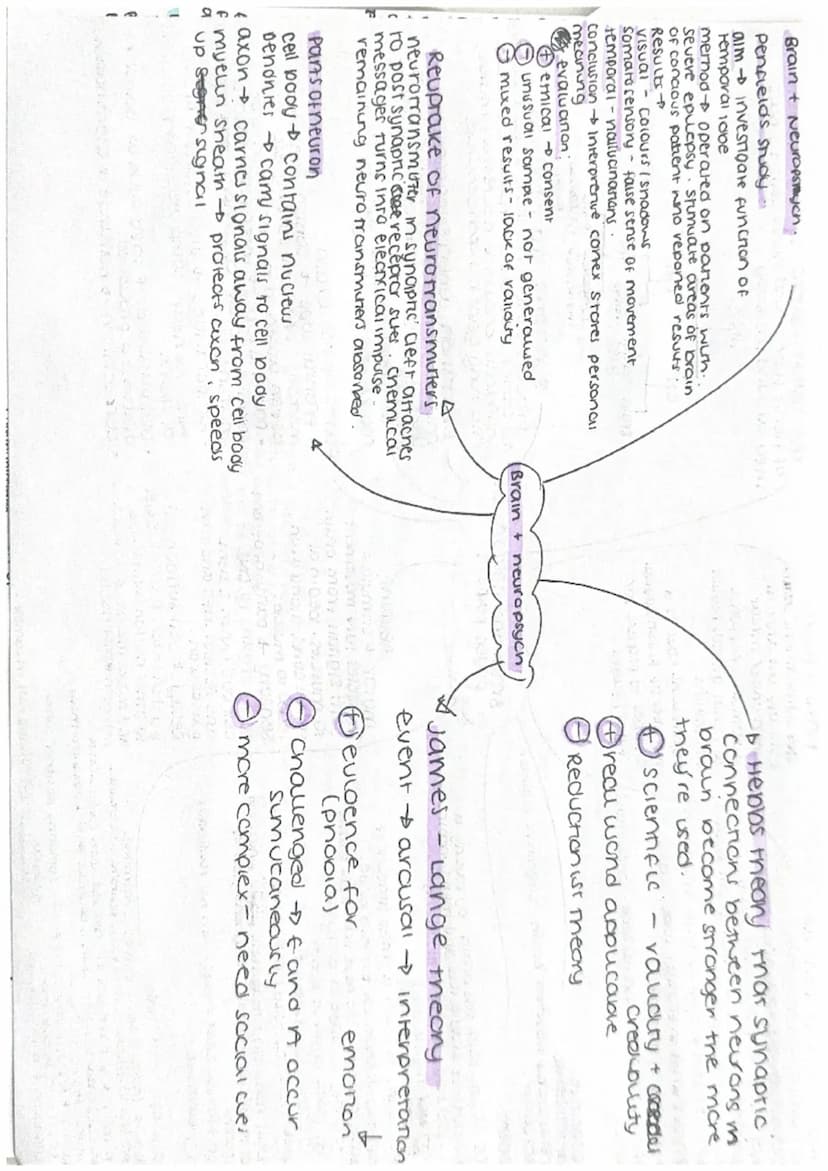 Brain + Neuropsych.
Penfields study
aim → investigate function of
temporal lobe
method → operated on patients with
severe epilepsy. Stimulate areas of brain
of concious patient who reported results
Results →
visual - colours / shadows
somatosensory - false sense of movement
temporal - hallucinations.
conclusion → interpretive cortex stores personal
meaning
evaluation:
⊕ ethical → consent
⊖ unusual sample - not generalised
⊖ mixed results - lack of validity
Reuptake of neurotransmitters
neurotransmitter in synaptic cleft attaches
to post synaptic receptor sites. chemical
messages turns into electrical impulse.
remaining neurotransmitters absorbed
Parts of neuron
cell body → contains nucleus
Dendrites → carry signals to cell body
axon → carries signals away from cell body
myelin sheath → protects axon, speeds
up signal
Brain + neuropsych
Hebbs theory that synaptic
connections between neurons in
brain become stronger the more
they're used.
⊕ scientific - validity +
credibility
⊕ real world applicable
⊖ Reductionist theory
James - Lange theory
event → arousal → interpretation
↓
emotion
⊕ evidence for
(phobia)
⊖ challenged → E and A occur
simutaneously
⊖ more complex - need social cues